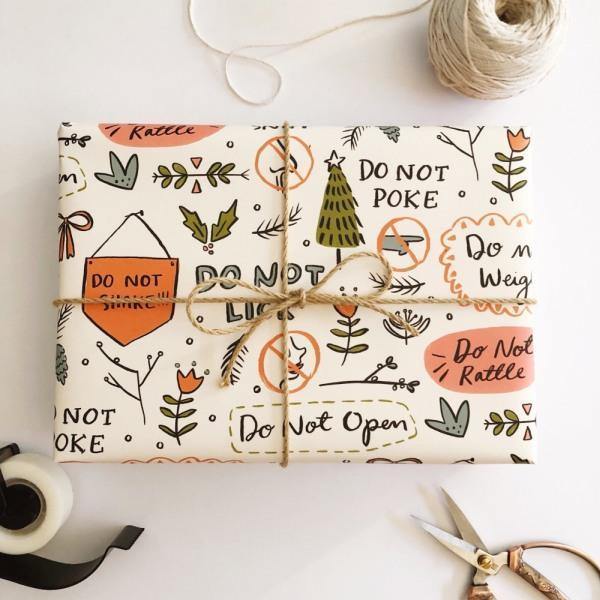 Rattle
DO NOT
POKE
DO NOT
SHAKE!!!
DO NOT
LICK
Do n
Weig
Do Not
Rattle
NOT
OKE
Do Not Open